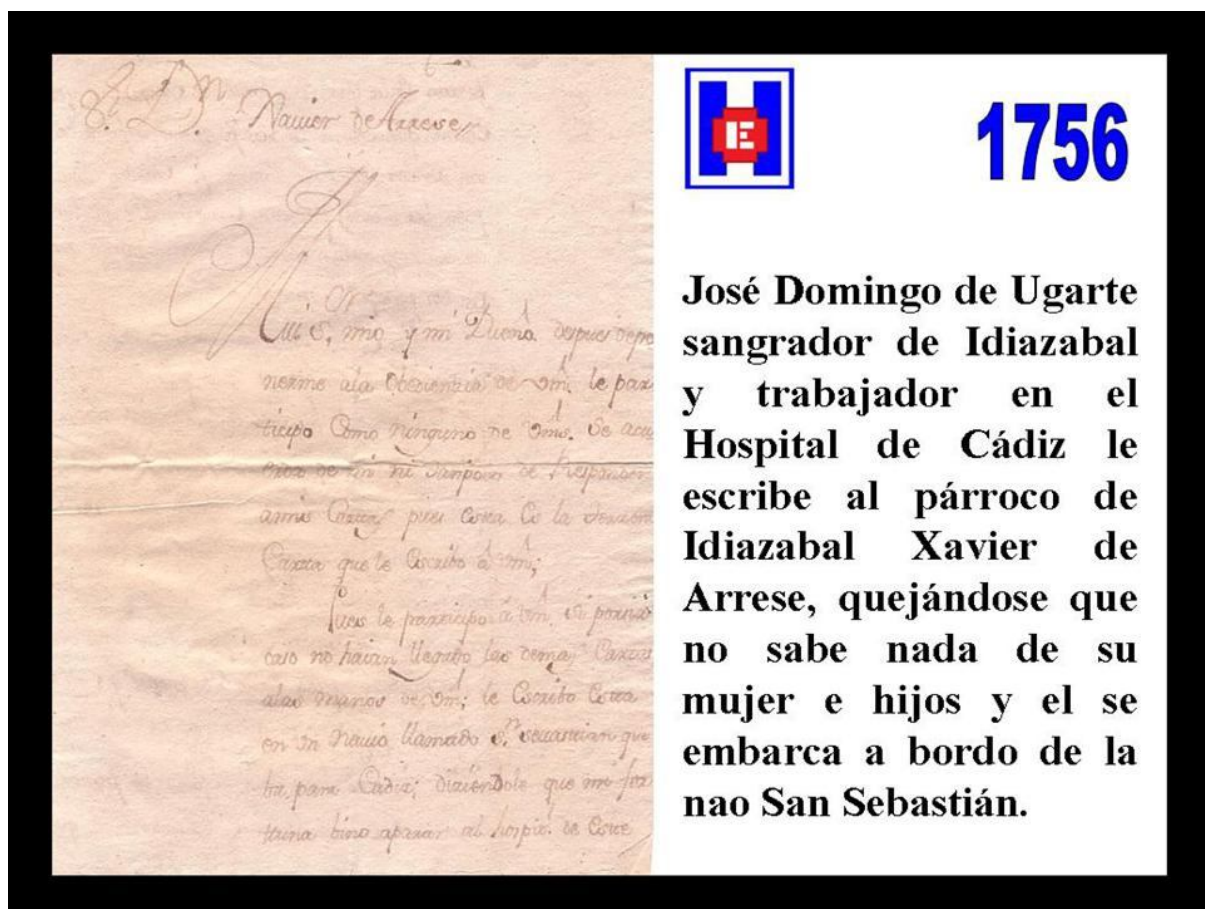 Sr. Dn. Xauier de Arrese
Mui Sr. mio y mi Dueño despues de po
nerme ala Obediencia de Vmd. le par
ticipo Como ninguno de Vmds. Se acu
de mi ni tampoco de Responder
amis Cartas pues Esta Es la
Carta que le Escribo â Vmd;
Pues le participo â Vmd. si
caso no haian llegado las demas Cartas
alas manos de Vmd; le Escribo Esta
en Un Nauio llamado Sn. Seuastian que
ba para Cadiz; diziendole que mi for
tuna bino aparar al hospital de Este
H
E
1756
José Domingo de Ugarte
sangrador de Idiazabal
y trabajador en el
Hospital de Cádiz le
escribe al párroco de
Idiazabal Xavier de
Arrese, quejándose que
no sabe nada de su
mujer e hijos y el se
embarca a bordo de la
nao San Sebastián.